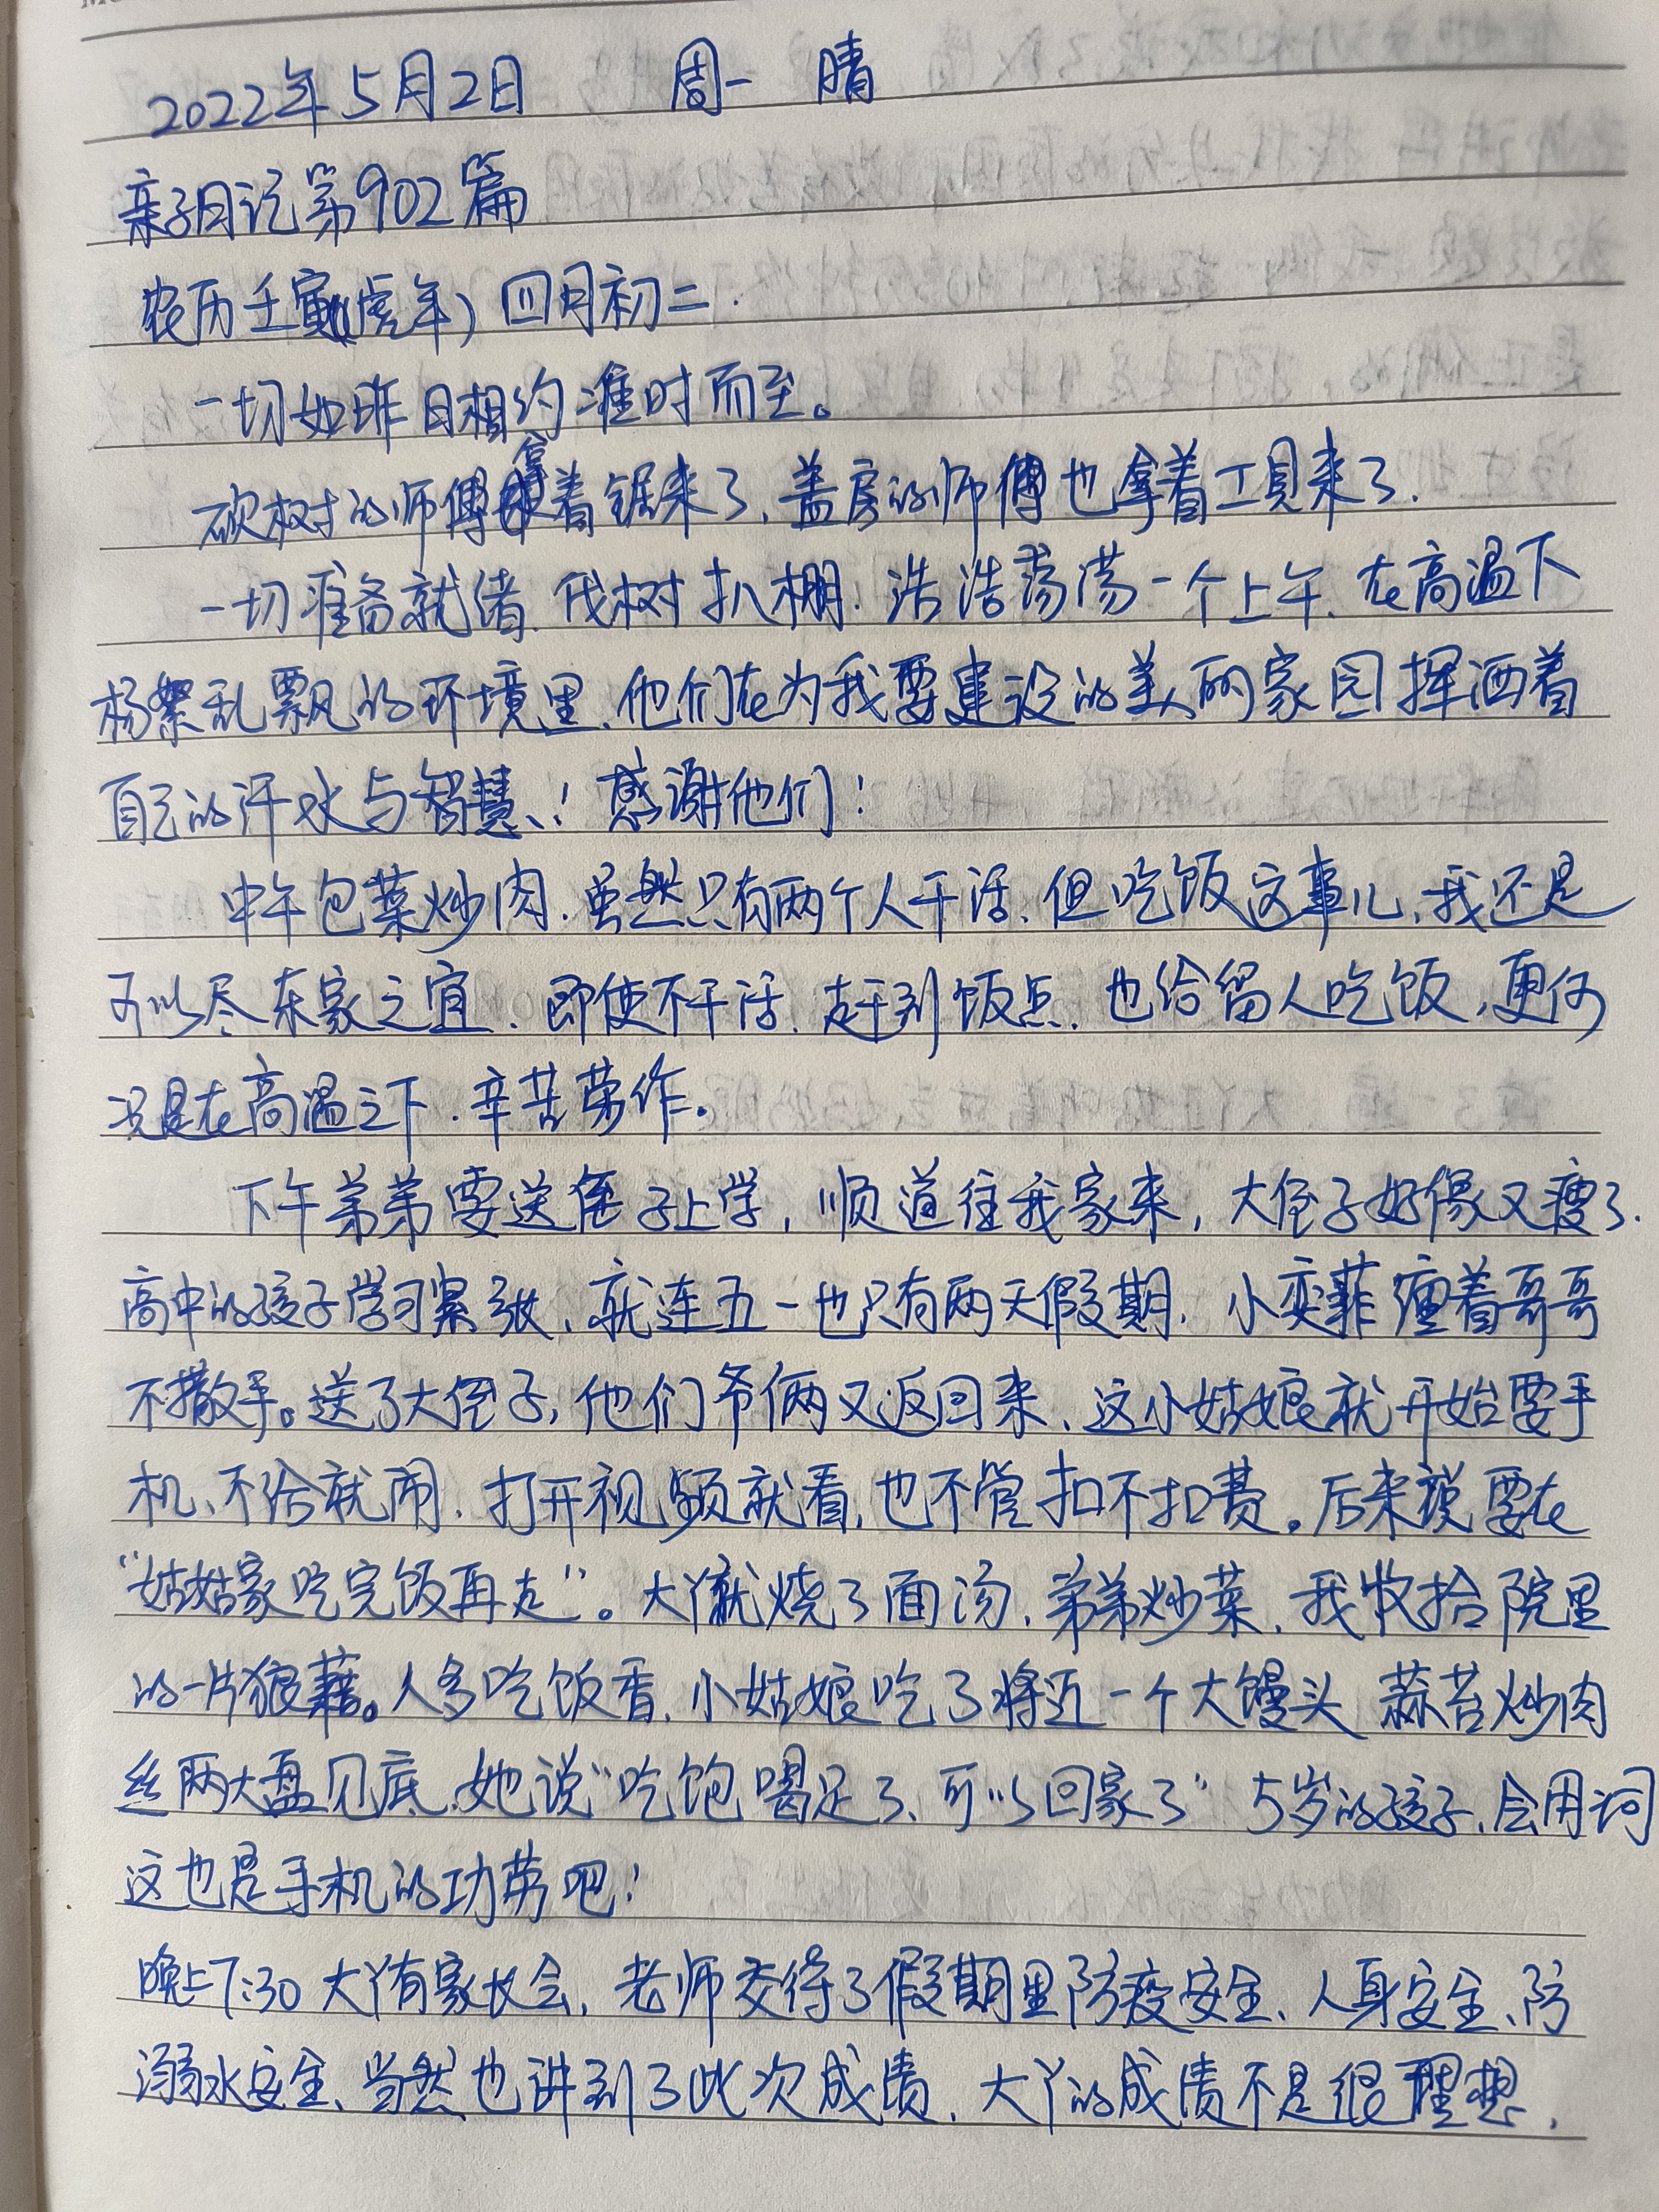 2022年5月2日 周一 晴
亲子日记第902篇
农历壬寅(虎年)四月初二.
一切如昨日相约准时而至。
砍树的师傅拿着锯来了,盖房的师傅也拿着工具来了.
一切准备就绪.伐树扒棚.浩浩荡荡一个上午.在高温下
杨絮乱飘的环境里.他们在为我要建设的美丽家园挥洒着
自己的汗水与智慧!感谢他们!
中午包菜炒肉.虽然只有两个人干活.但吃饭这事儿,我还是
可以尽东家之宜.即使不干活.赶到饭点.也给留人吃饭,更何
况是在高温之下.辛苦劳作。
下午弟弟要送侄子上学,顺道往我家来,大侄子好像又瘦了.
高中的孩子学习紧张、就连五一也只有两天假期.小奕菲缠着哥哥
不撒手。送了大侄子,他们爷俩又返回来、这小姑娘就开始要手
机、不给就闹.打开视频就看,也不管扣不扣费。后来说要在
“姑姑家吃完饭再走”。大丫就烧了面汤.弟弟炒菜,我收拾院里
的一片狼藉。人多吃饭香.小姑娘吃了将近一个大馒头 蒜苔炒肉
丝两大盘见底.她说“吃饱喝足了、可以回家了”5岁的孩子.会用词
这也是手机的功劳吧!
晚上7:30大丫有家长会,老师交待了假期里防疫安全、人身安全、防
溺水安全、当然也讲到了此次成绩.大丫的成绩不是很理想.